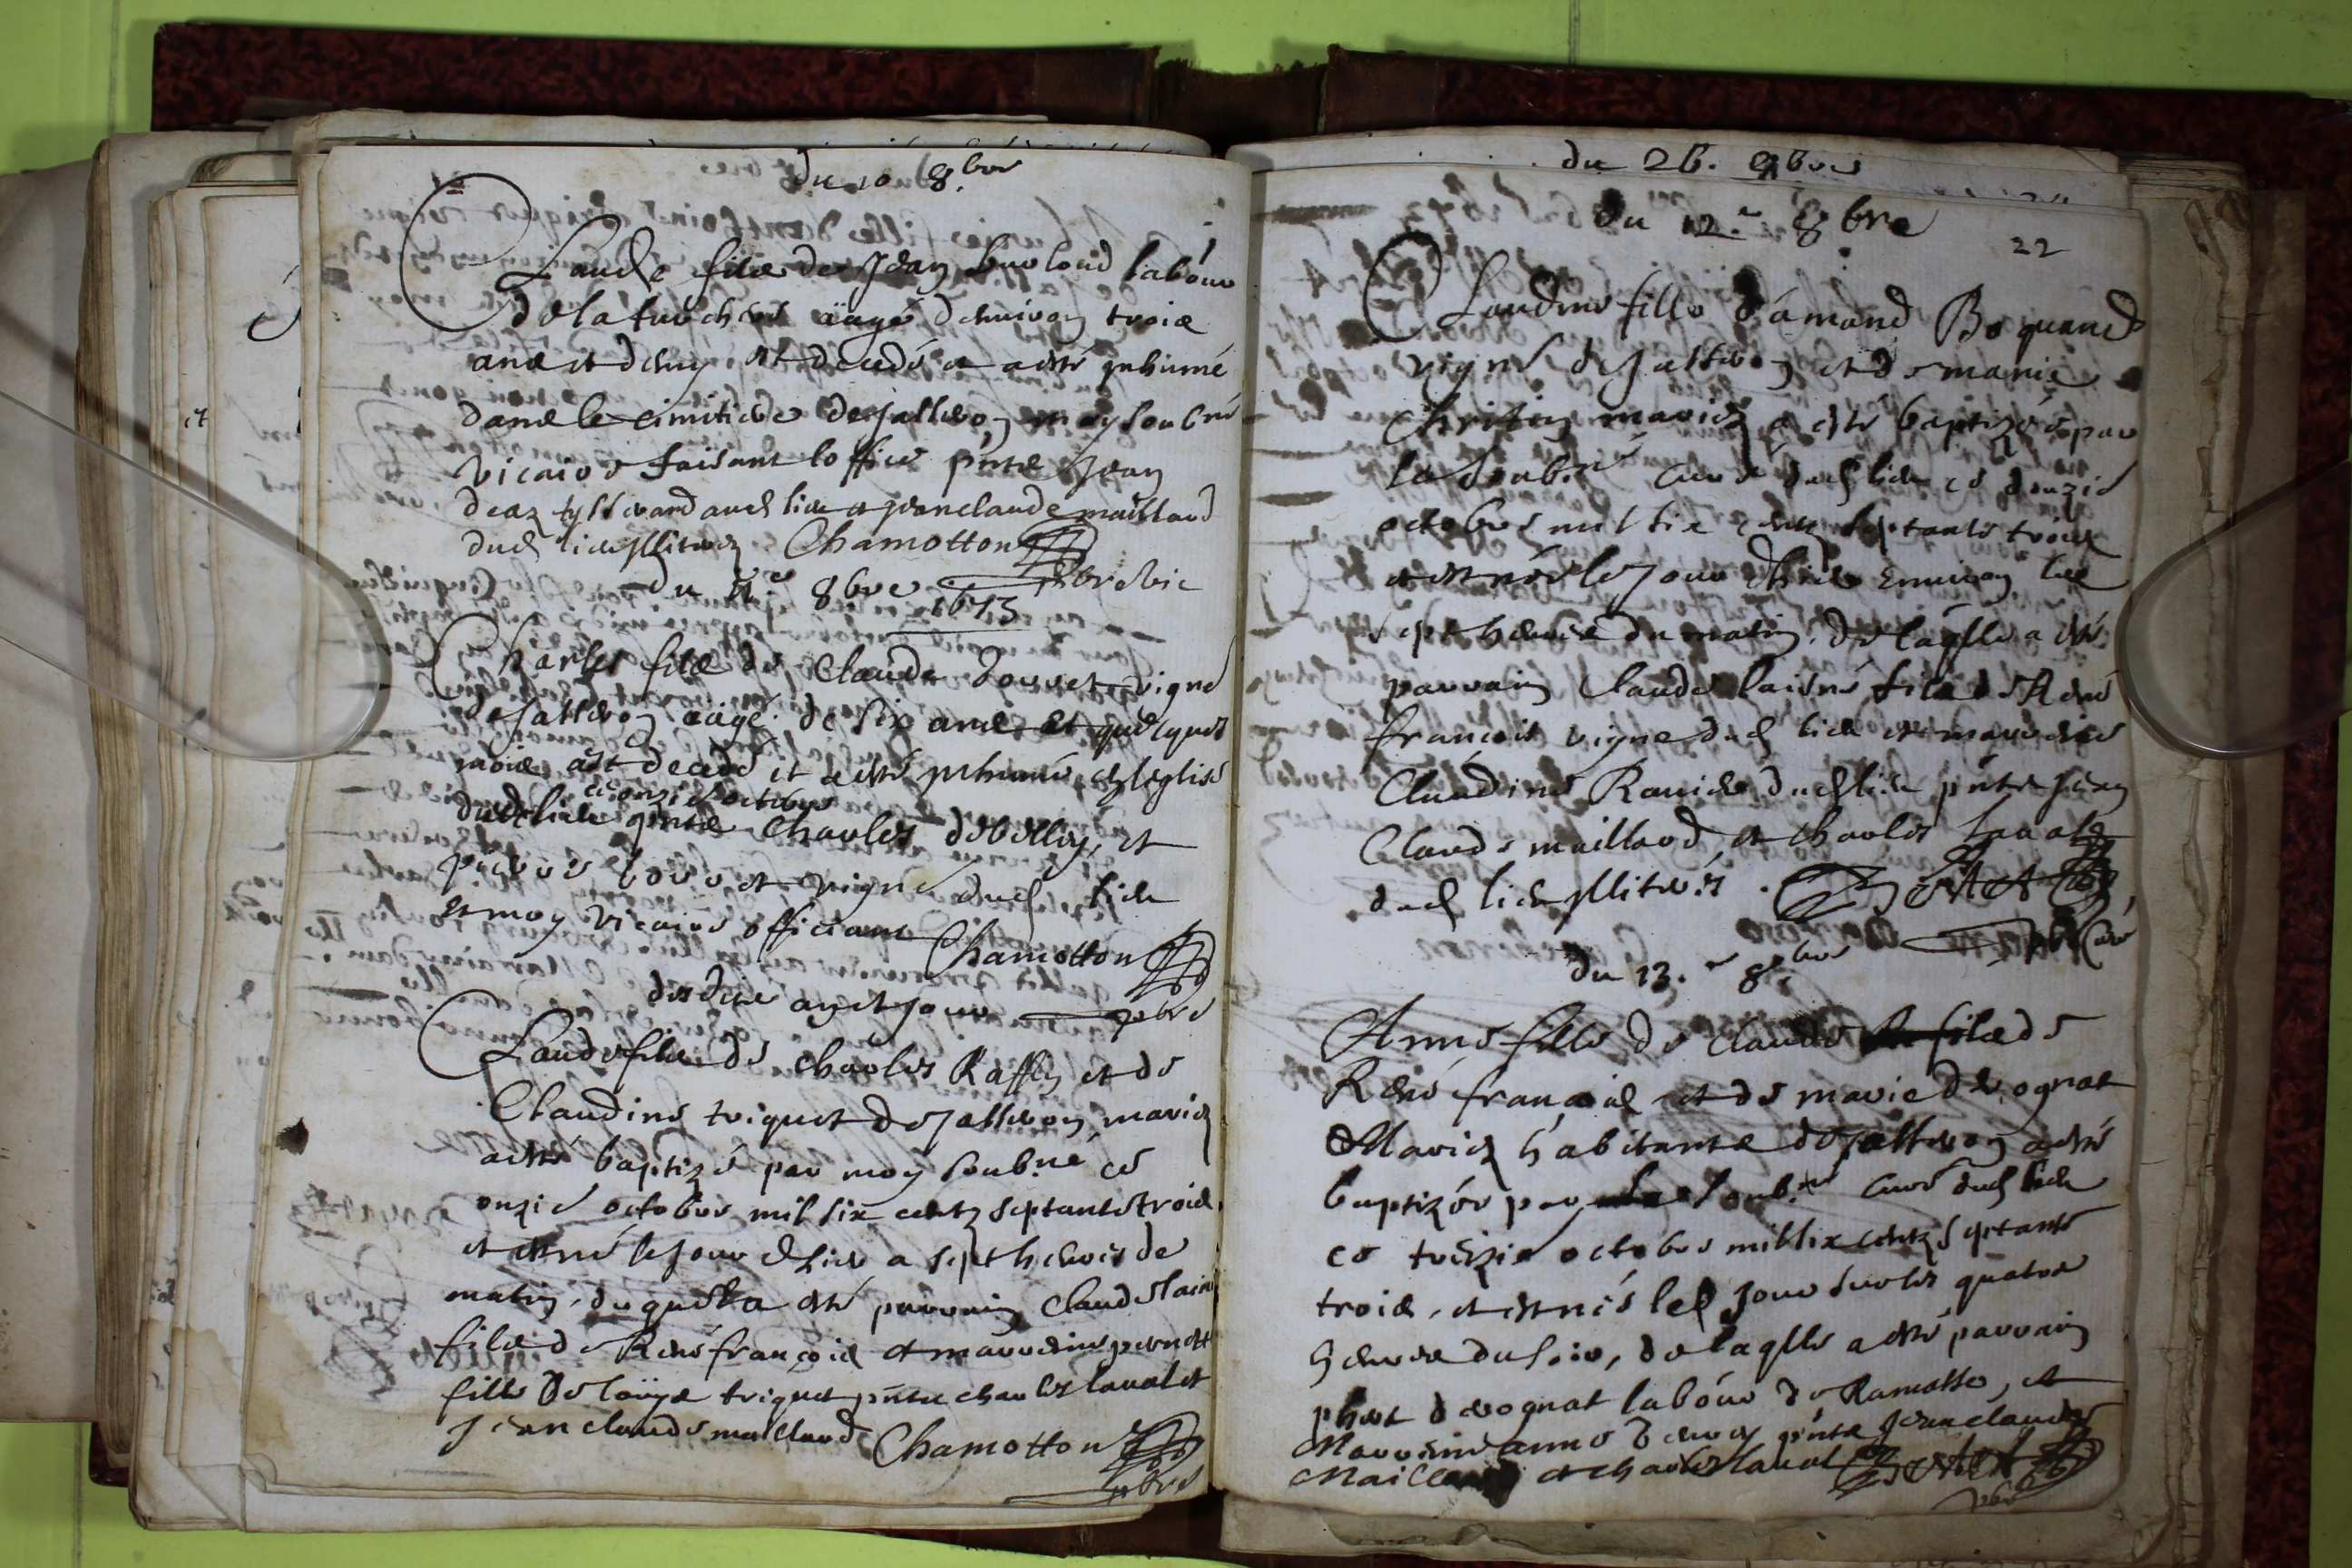 du 10 8.bre
Claude filz de Jean labour
de la aagé denviron troiz
anz et demy est decedé et a esté inhumé
danz le cimitiere de Jallerey moy soubné
vicaire faisant loffice pñtz Jean
aud lieu et Jean claude maillard
dud lieu illiterez Chamotton
pbre vic
du 11.e 8bre
1673
Charles filz de Claude vigne
de Jallerey aagé de six anz et quelques
moiz est decedé et a esté inhumé en leglise
ce onzie octobre
dud lieu pñtz Charles debelley, et
pierre et vigne dud lieu
et moy vicaire officiant Chamotton
pbre
des ditz an et jour
Claude filz de Charles Raffin et de
Claudine triquet de Jallerey mariez
a esté baptizé par moy soubné ce
onzie octobre mil six centz septante troiz
et est né le jour dhier a sept heures de
matin, duquel a esté parrain Claude lainé
filz de René françoiz et marreine pernette
fille de triquet pñtz charles laval et
Jean claude maillard Chamotton
pbre
du 26. 9bre
du 12.e 8bre
22
Claudine fille d'amand Boquand
vigne de Jallerey et de marie
Chritin mariez a esté baptizée par
le soub.né curé dud lieu ce douzie
octobre mil six centz septante troiz
et est née le jour dhier environ lez
sept heures du matin, de laqlle a esté
parrain Claude lainé filz de René
françois vigne dud lieu et marreine
Claudine dud lieu pñtz Jean
Claude maillard, et charles Laval
dud lieu illiterez.
pbr Curé
du 13.e 8.bre
Anne fille de Claude filz de
René françoiz et de marie derognat
Mariez habitantz de Jallerey a esté
baptizée par le soub.né curé dud lieu
ce treizie octobre mil six centz septante
troiz, et est née led jour sur les quatre
heures du soir, de laqlle a esté parrain
phert derognat labour de Ramasse, et
Marreine anne pñtz Jean claude
Maillard et charles laval
pbr